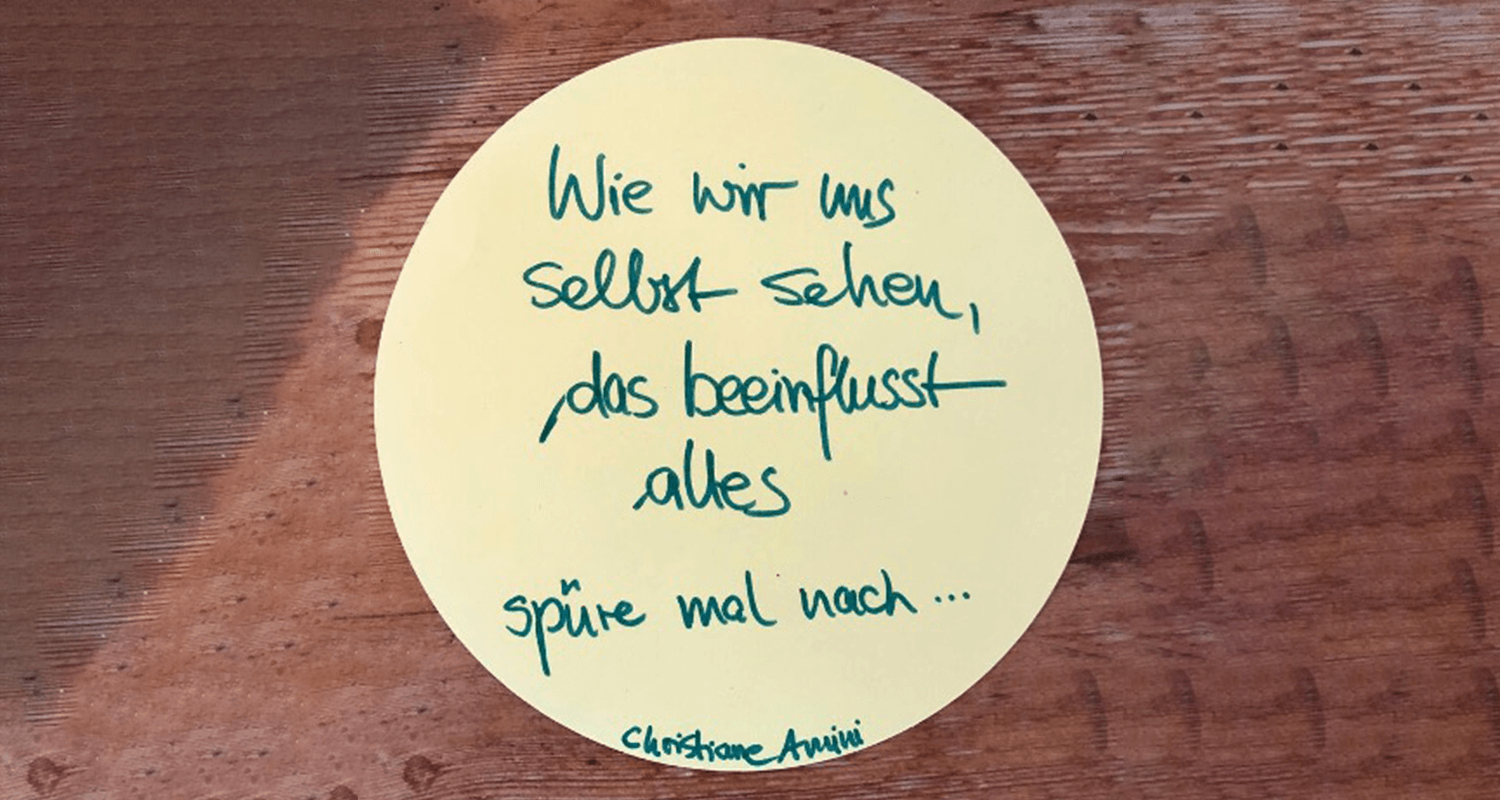 Wie wir uns
selbst sehen,
das beeinflusst
alles
spüre mal nach...
Christiane Amini